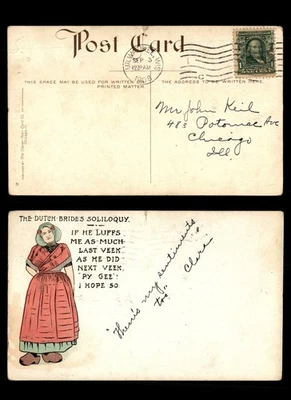 Post Card
SEP 3
1908
THIS SPACE MAY BE WRITTEN ON
PRINTED MATTER.
THE ADDRESS TO BE WRITTEN HERE.
Mr John Keil
483 Potomac Ave
Chicago
Ill.
THE DUTCH BRIDES SOLILOQUY.
IF HE LUFFS
ME AS MUCH
LAST VEEK
AS HE DID
NEXT VEEK,
"PY GEE":
I HOPE SO.
"There's my sentiments
too"
Clara